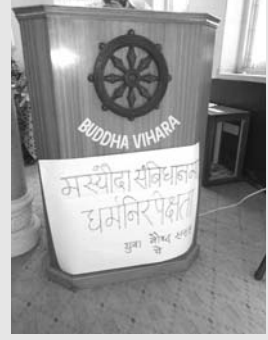 BUDDHA VIHARA
मस्यौदा संविधानमा
धर्मनिरपेक्षता
युवा बौद्ध